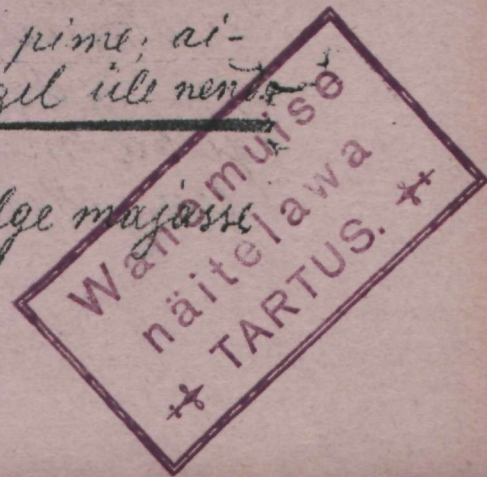 pime; ai-
gel üle nende
lge majasse
Wanemuise
näitelawa
TARTUS.